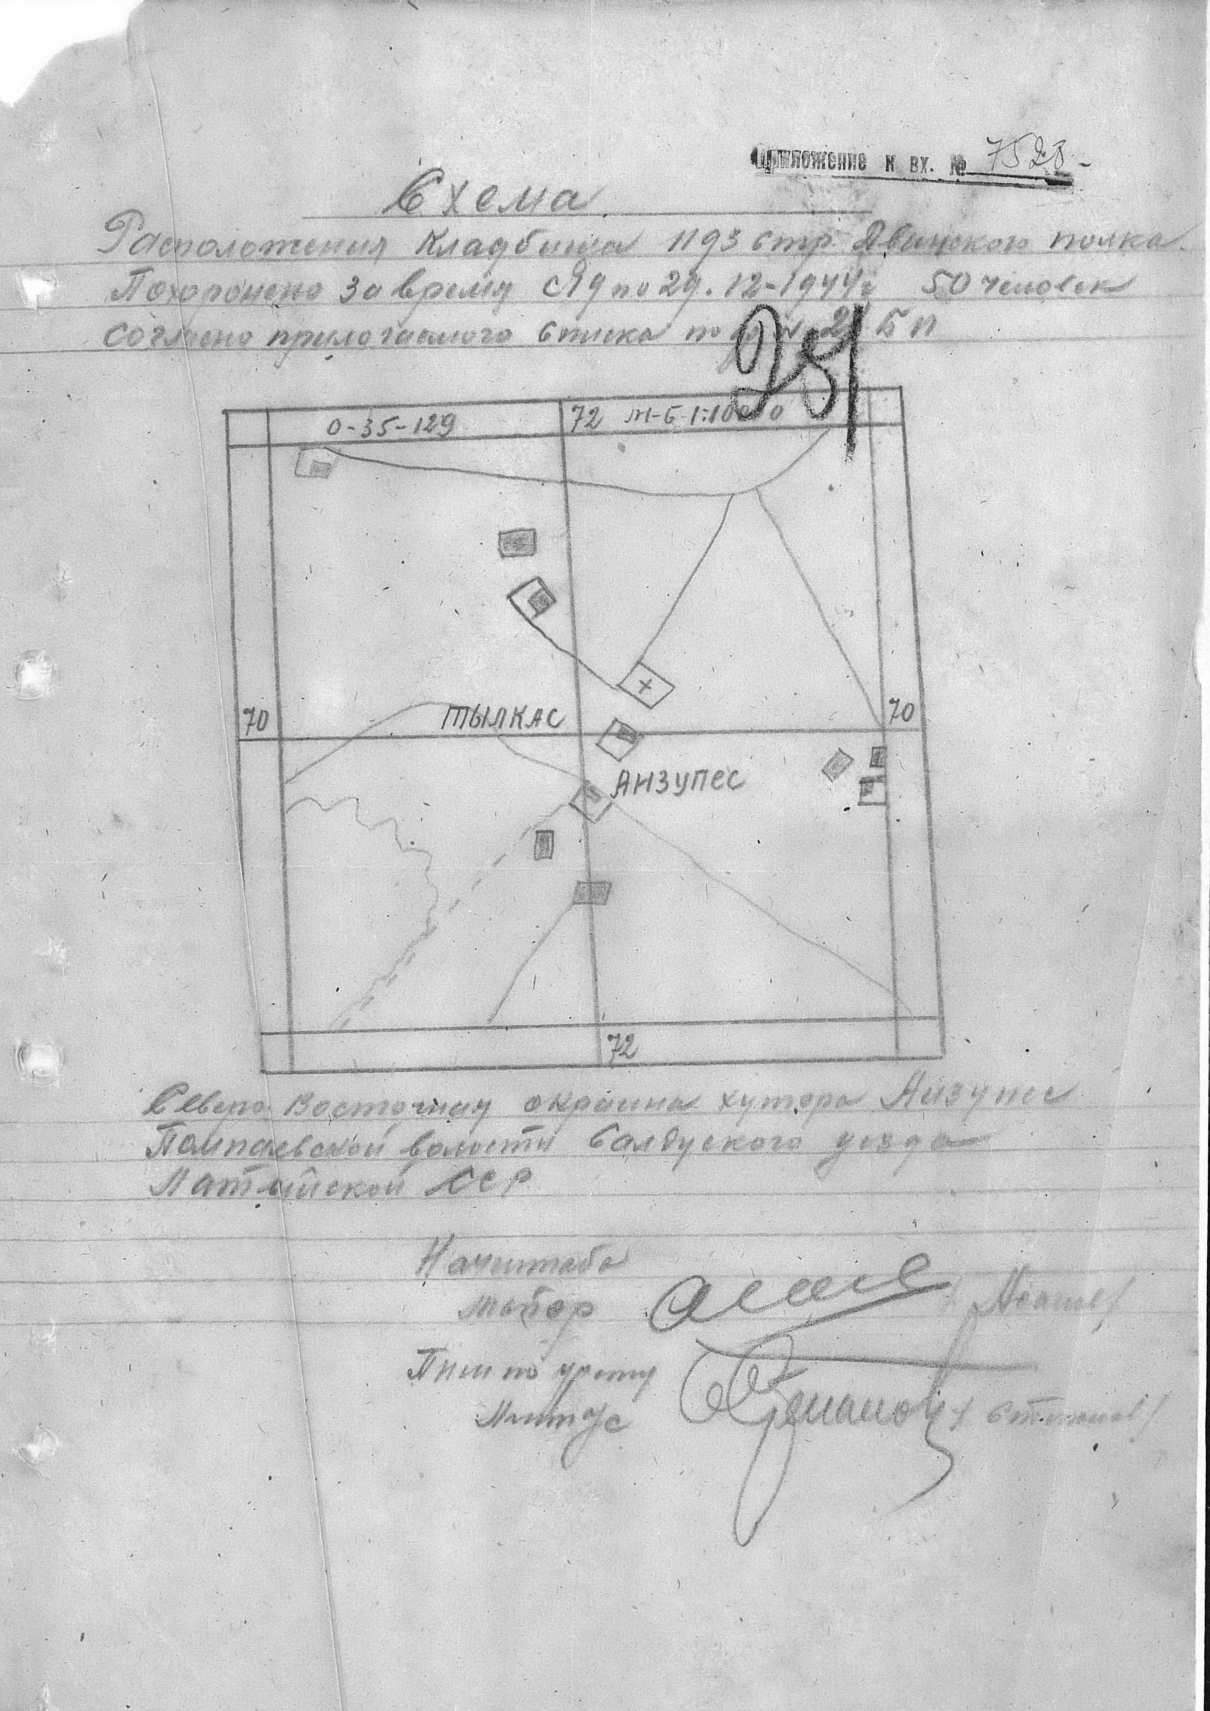 Приложение к вх. № 7528
Схема
Расположения Кладбища 1193 стр. Двинского полка.
Похоронено за время с 19 по 29.12-1944г 50 человек
согласно прилагаемого списка по ф № 2 БП
251
0-35-129
72 М-Б 1:10000
70
ТЫЛКАС
70
АНЗУПЕС
72
Северо Восточная окраина хутора Анзупес
волости Салдуского уезда
Латвийской ССР
Начштаба
майор
Пнш по учету